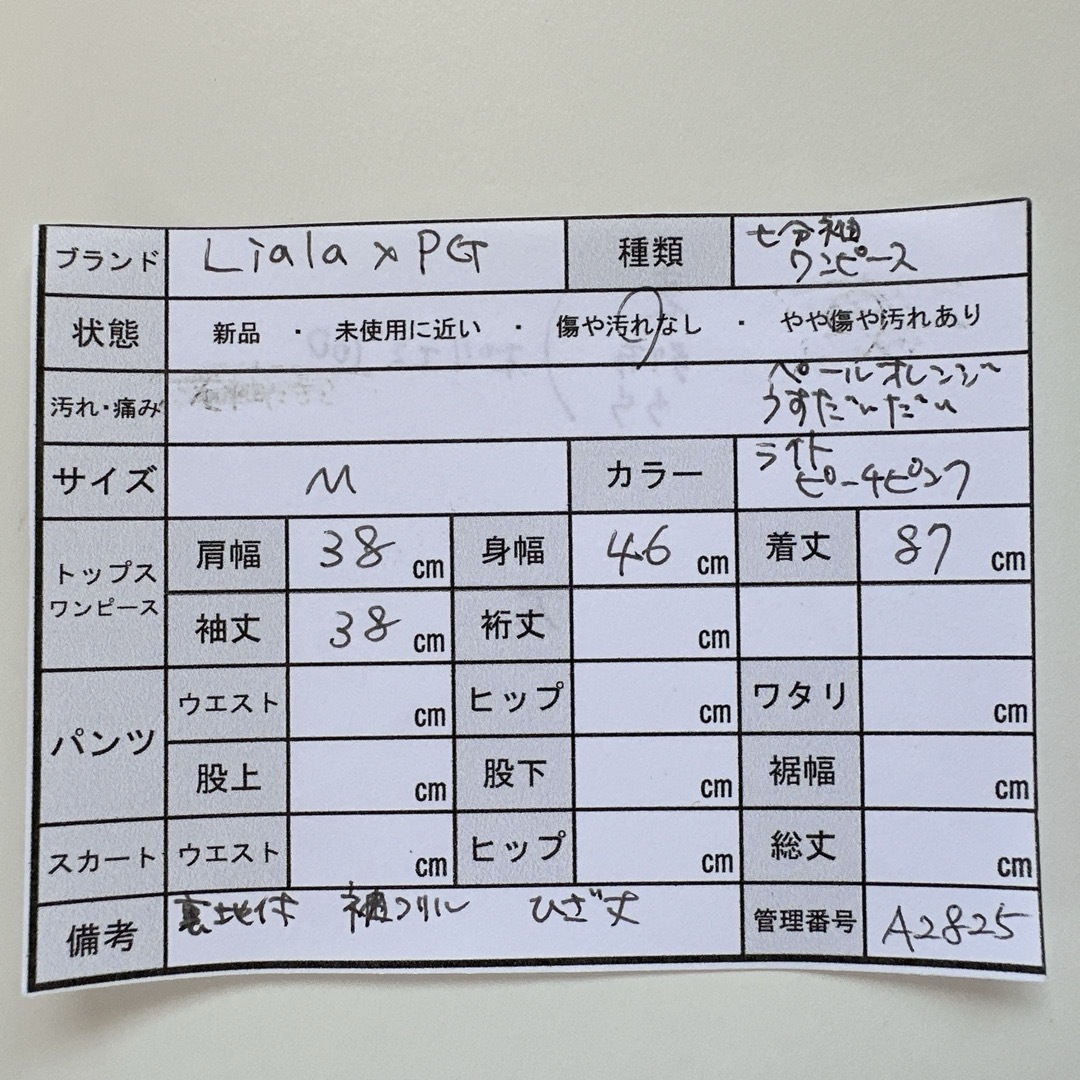 ブランド Liala x PG 種類 七分袖
ワンピース
状態 新品 ・ 未使用に近い ・ 傷や汚れなし ・ やや傷や汚れあり
汚れ・痛み ペールオレンジ
うすだいだい
サイズ M カラー ライト
ピーチピンク
トップス
ワンピース
肩幅 38 cm 身幅 46 cm 着丈 87 cm
袖丈 38 cm 裄丈 cm
パンツ
ウエスト cm ヒップ cm ワタリ cm
股上 cm 股下 cm 裾幅 cm
スカート ウエスト cm ヒップ cm 総丈 cm
備考 裏地付 袖フリル ひざ丈 管理番号 A2825